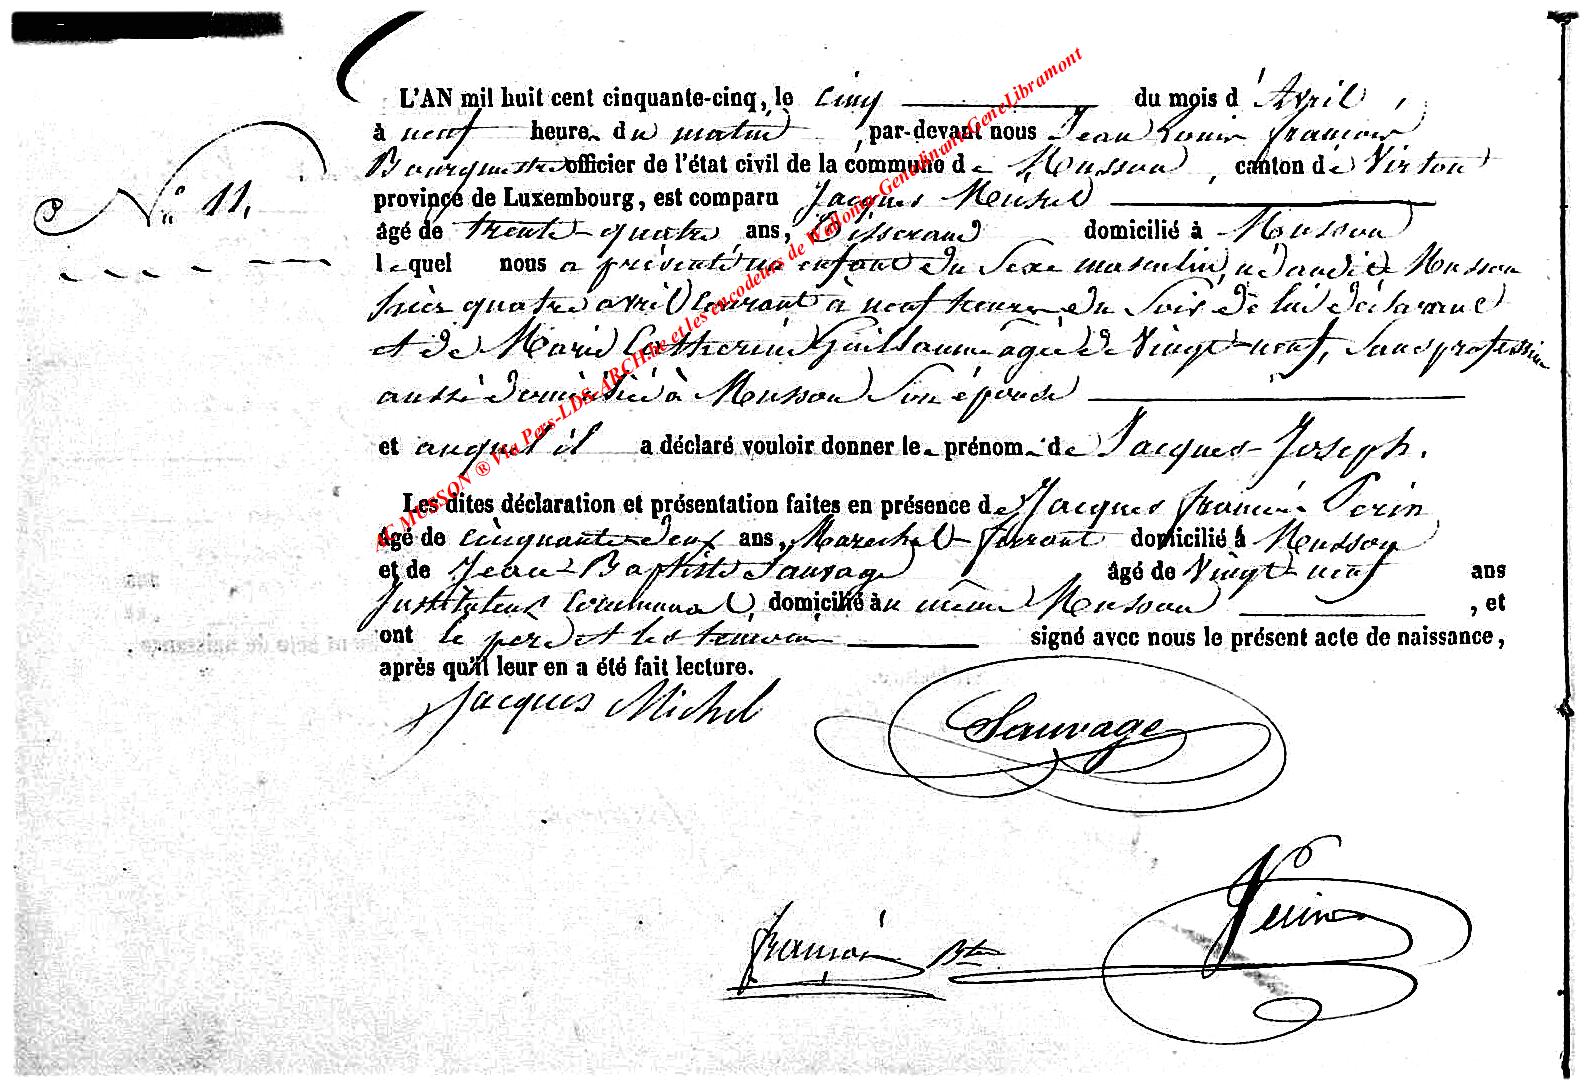 L'AN mil huit cent cinquante-cinq, le cinq du mois d'Avril,
à neuf heure du matin, par-devant nous Jean Louis françois
Bourgumestre officier de l'état civil de la commune de Musson, canton de Virton
N° 11.
province de Luxembourg, est comparu Jacques Michel
âgé de trente-quatre ans, Tisserand domicilié à Musson
lequel nous a présenté un enfant du sexe masculin, né audit Musson
hier quatre avril courant à neuf heures du soir, de lui déclarant
et de Marie Catherine Guillaume âgée de vingt-neuf, sans profession
aussi domiciliée à Musson son épouse
et auquel il a déclaré vouloir donner le prénom de Jacques-Joseph.
Les dites déclaration et présentation faites en présence de Jacques françois Perin
âgé de cinquante-deux ans, Marechal-ferrant domicilié à Musson
et de Jean-Baptiste Sauvage âgé de vingt-neuf ans
Instituteur Communal, domicilié au même Musson, et
ont le père et les témoins signé avec nous le présent acte de naissance,
après qu'il leur en a été fait lecture.
Jacques Michel
Sauvage
Perin
françois Btre
AG MUSSON ® Via Pers-LDS-ARCH.be et les encodeurs de Wallonia-Genedinant-GeneLibramont